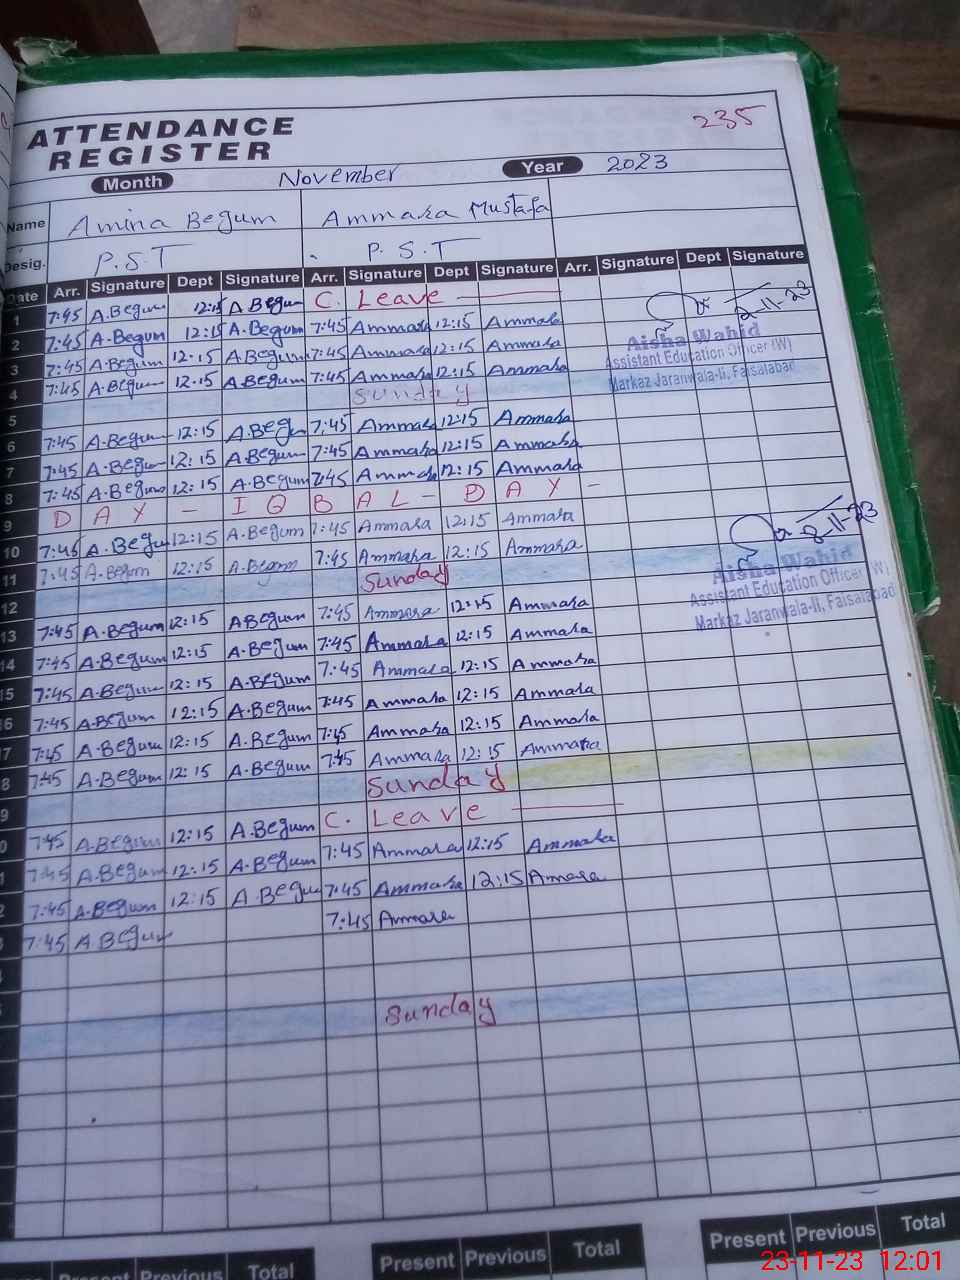 235
ATTENDANCE
REGISTER
Month November Year 2023
Name Amina Begum Ammara Mustafa
Desig. P.S.T P.S.T
Date Arr. Signature Dept Signature Arr. Signature Dept Signature Arr. Signature Dept Signature
1 7:45 A.Begum 12:15 A Begum C. Leave
2 7:45 A.Begum 12:15 A.Begum 7:45 Ammara 12:15 Ammara
3 7:45 A.Begum 12:15 A.Begum 7:45 Ammara 12:15 Ammara
4 7:45 A.Begum 12:15 A.Begum 7:45 Ammara 12:15 Ammara
2-11-23
Aisha Wahid
Assistant Education Officer (W)
Markaz Jaranwala-II, Faisalabad
5 Sunday
6 7:45 A.Begum 12:15 A.Beg 7:45 Ammara 12:15 Ammara
7 7:45 A.Begum 12:15 A.Begum 7:45 Ammara 12:15 Ammara
8 7:45 A.Begum 12:15 A.Begum 7:45 Ammara 12:15 Ammara
9 DAY - IQBAL - DAY -
10 7:45 A.Begum 12:15 A.Begum 7:45 Ammara 12:15 Ammara
11 7:45 A.Begum 12:15 A.Begum 7:45 Ammara 12:15 Ammara
Aisha Wahid
Assistant Education Officer (W)
Markaz Jaranwala-II, Faisalabad
12 Sunday
13 7:45 A.Begum 12:15 A Begum 7:45 Ammara 12:15 Ammara
14 7:45 A.Begum 12:15 A.Begum 7:45 Ammara 12:15 Ammara
15 7:45 A.Begum 12:15 A.Begum 7:45 Ammara 12:15 Ammara
6 7:45 A.Begum 12:15 A.Begum 7:45 Ammara 12:15 Ammara
7 7:45 A.Begum 12:15 A.Begum 7:45 Ammara 12:15 Ammara
8 7:45 A.Begum 12:15 A.Begum 7:45 Ammara 12:15 Ammara
9 Sunday
0 7:45 A.Begum 12:15 A.Begum C. Leave
1 7:45 A.Begum 12:15 A.Begum 7:45 Ammara 12:15 Ammara
2 7:45 A.Begum 12:15 A.Begum 7:45 Ammara 12:15 Amara
3 7:45 A.Begum 7:45 Ammara
Sunday
Present Previous Total Present Previous Total Present Previous Total
23-11-23 12:01